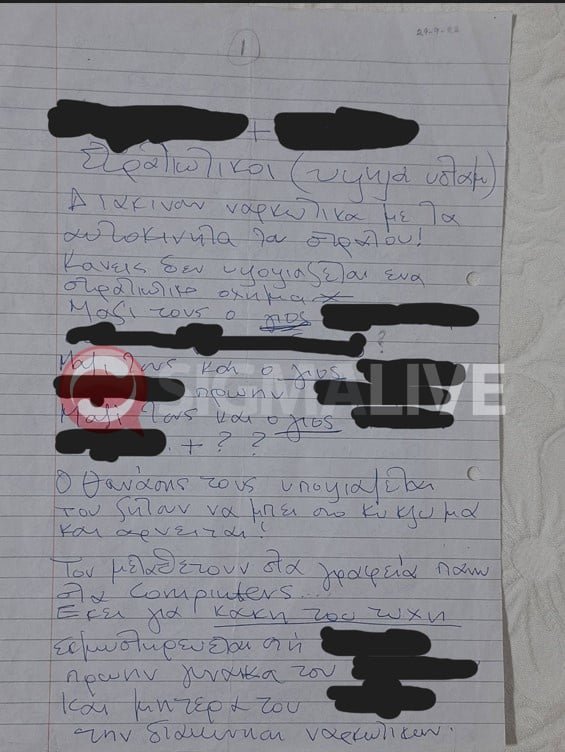 1
29-9-22
+
Στρατιωτικοι (ψηλά ισταμ)
Διακιναν ναρκωτικα με τα
αυτοκινητα του στρατου!
Κανεις δεν υποψιαζεται ενα
στρατιωτικο οχημα
Μαζι τους ο γιος
?
Μαζι τους και ο γιος
πρωην
SIGMALIVE
Μαζι τους και ο γιος
. + ? ?
Ο Θανάσης τους υποψιαζεται
του ζηταν να μπει στο κυκλωμα
και αρνειται!
Τον μεταθετουν στα γραφεία πανω
στα computers...
Εκει για κακη του τυχη
εκμυστηρευεται στη
πρωην γυναικα του
και μητερα του
την διακινηση ναρκωτικων.